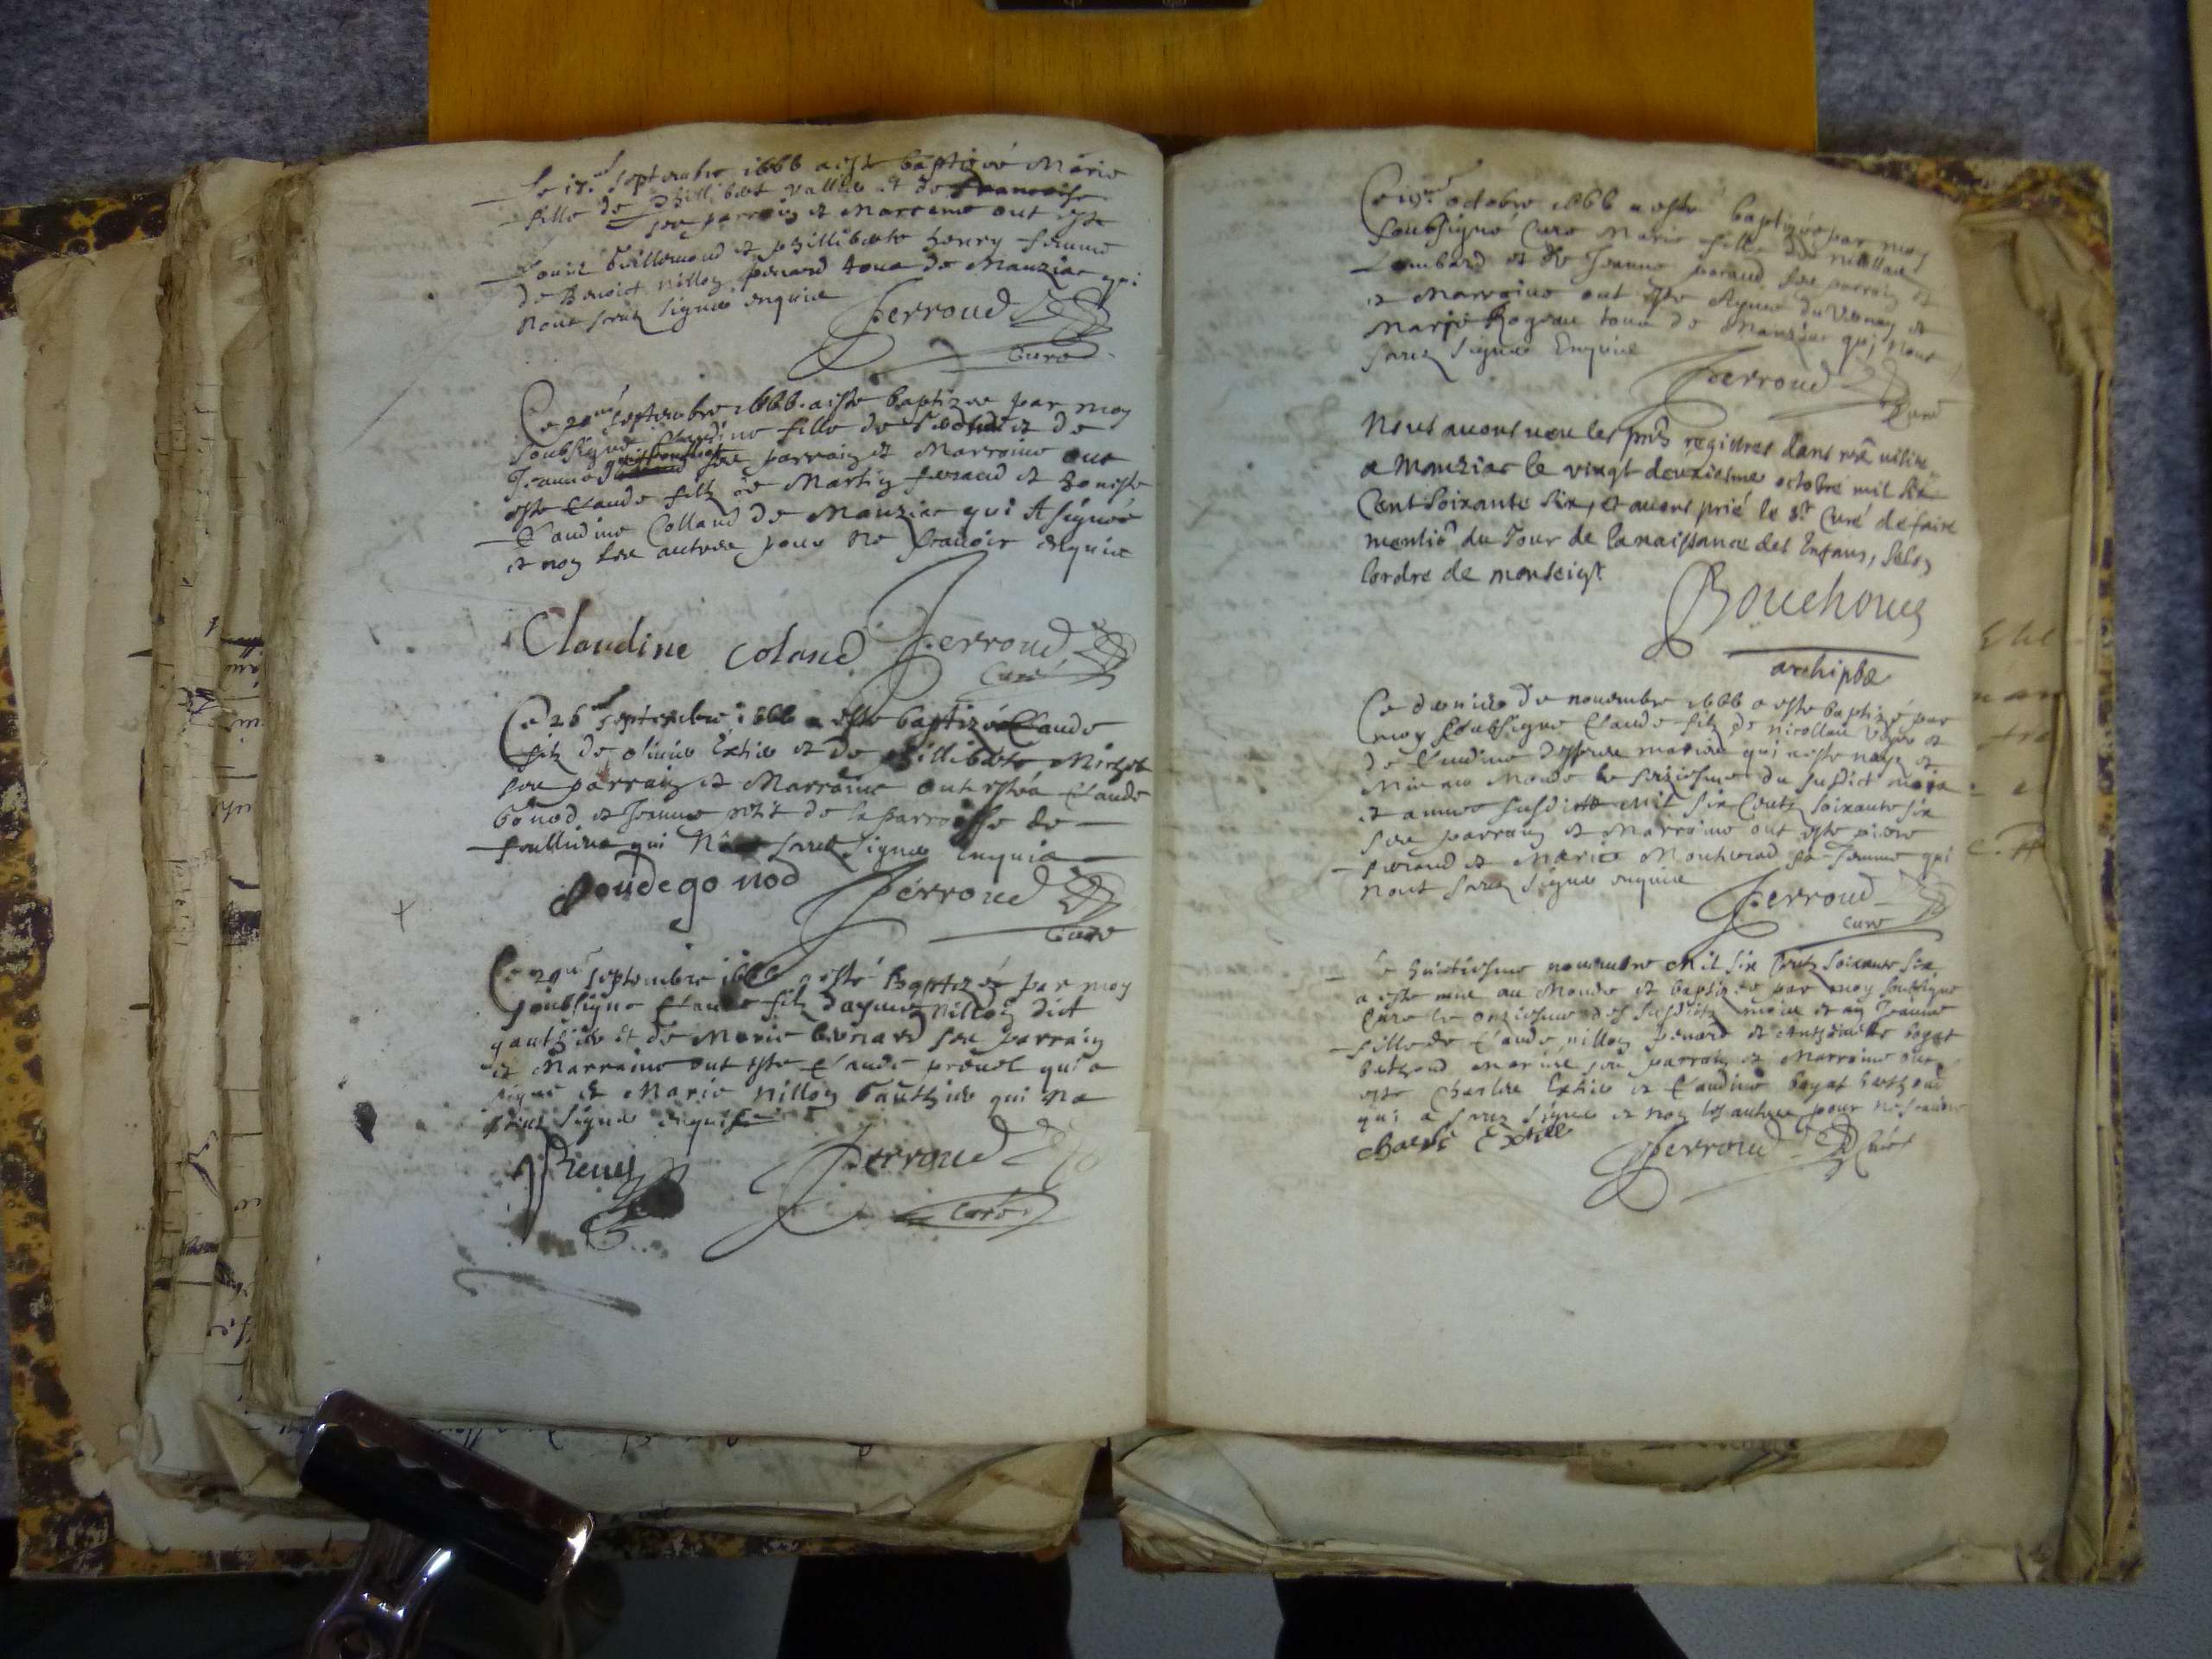 Le 17me septembre 1666 a este baptizée Marie
fille de Phillibert vallier et de francoise
ses parrain et Marreine ont este
Louis Guillemaud et philliberte henry femme
de Benoict nillon penard tous de Manziac qui
nont sceuz signer enquis
Perroud
Curé
Ce 20me septembre 1666 a este baptizee par moy
soubsigné Claudine fille de et de
Jeanne ses parrain et Marraine ont
este Claude filz de Martin feraud et honeste
Claudine Colland de Manziac qui A signée
et non les autres pour ne scauoir enquis
Claudine coland Perroud
Curé
Ce 26me septembre 1666 a este baptizé Claude
filz de oliuier Extier et de philliberte Michel
ses parrain et Marraine ont esté Claude
Gonod et Jeanne petit de la parroisse de
qui sceu signer enquis
goude go nod Perroud
Curé
Ce 29me septembre 1666 a esté Baptizé par moy
soubsigné Claude filz daymé nillon dict
gauthier et de Marie benard ses parrain
et Marraine ont este Claude preuel qui a
signé et Marie nillon Gauthier qui na
sceu signer enquise
Perroud
Curé
Ce 19me octobre 1666 a este baptizée par moy
soubsigné Curé Marie fille de nicollas
Lombard et de Jeanne feraud ses parrain et
et Marraine ont este Aymé du Vernay et
Marie Rogeau tous de Manziac qui nont
sceuz signer Enquis
Perroud
Curé
Nous auons veu les pnts registres dans nre visite
a Manziac le vingt deuxiesme octobre mil six
Cent Soixante six, et auons prié le Sr Curé de faire
mentiõ du Jour de la naissance des Enfans, selon
lordre de monseigr
Bouchoux
archipbre
Ce dernier de nouembre 1666 a este baptizé par
moy soubsigné Claude filz de nicollas Voyer et
de Claudine mariés qui a este nay et
Mis au Monde le seiziesme du susdict mois
et annee susdicte Mil six Centz soixante six
ses parrain et Marraine ont este pierre
feraud et Marie Monterad sa femme qui
nont sceuz signer enquis
Perroud
curé
Le huictiesme nouembre Mil six Centz soixante six
a este mise au Monde et baptizée par moy soubsigné
Curé le onziesme des susdictz mois et an Jeanne
fille de Claude nillon penard et Anthoinette bogat
berthoud mariés ses parrain et Marraine ont
este Charles Extier et Claudine bogat berthoud
qui a sceuz signer et non les autres pour ne scauoir
charle Extier Perroud Curé